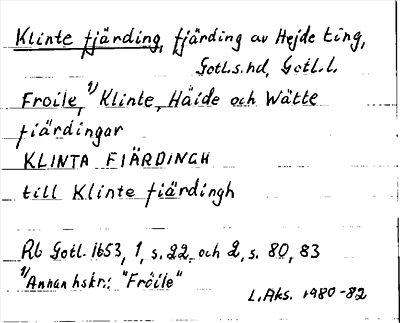 Klinte fjärding, fjärding av Hejde ting,
Gotl.s. hd, Gotl. l.
Froile, 1) Klinte, Häide och Wätte
fiärdingar
KLINTA FIÄRDINGH
till Klinte fiärdingh
Rb Gotl. 1653, 1, s. 22, och 2, s. 80, 83
1) Annan hskr.: "Fröile"
L. Aks. 1980-82